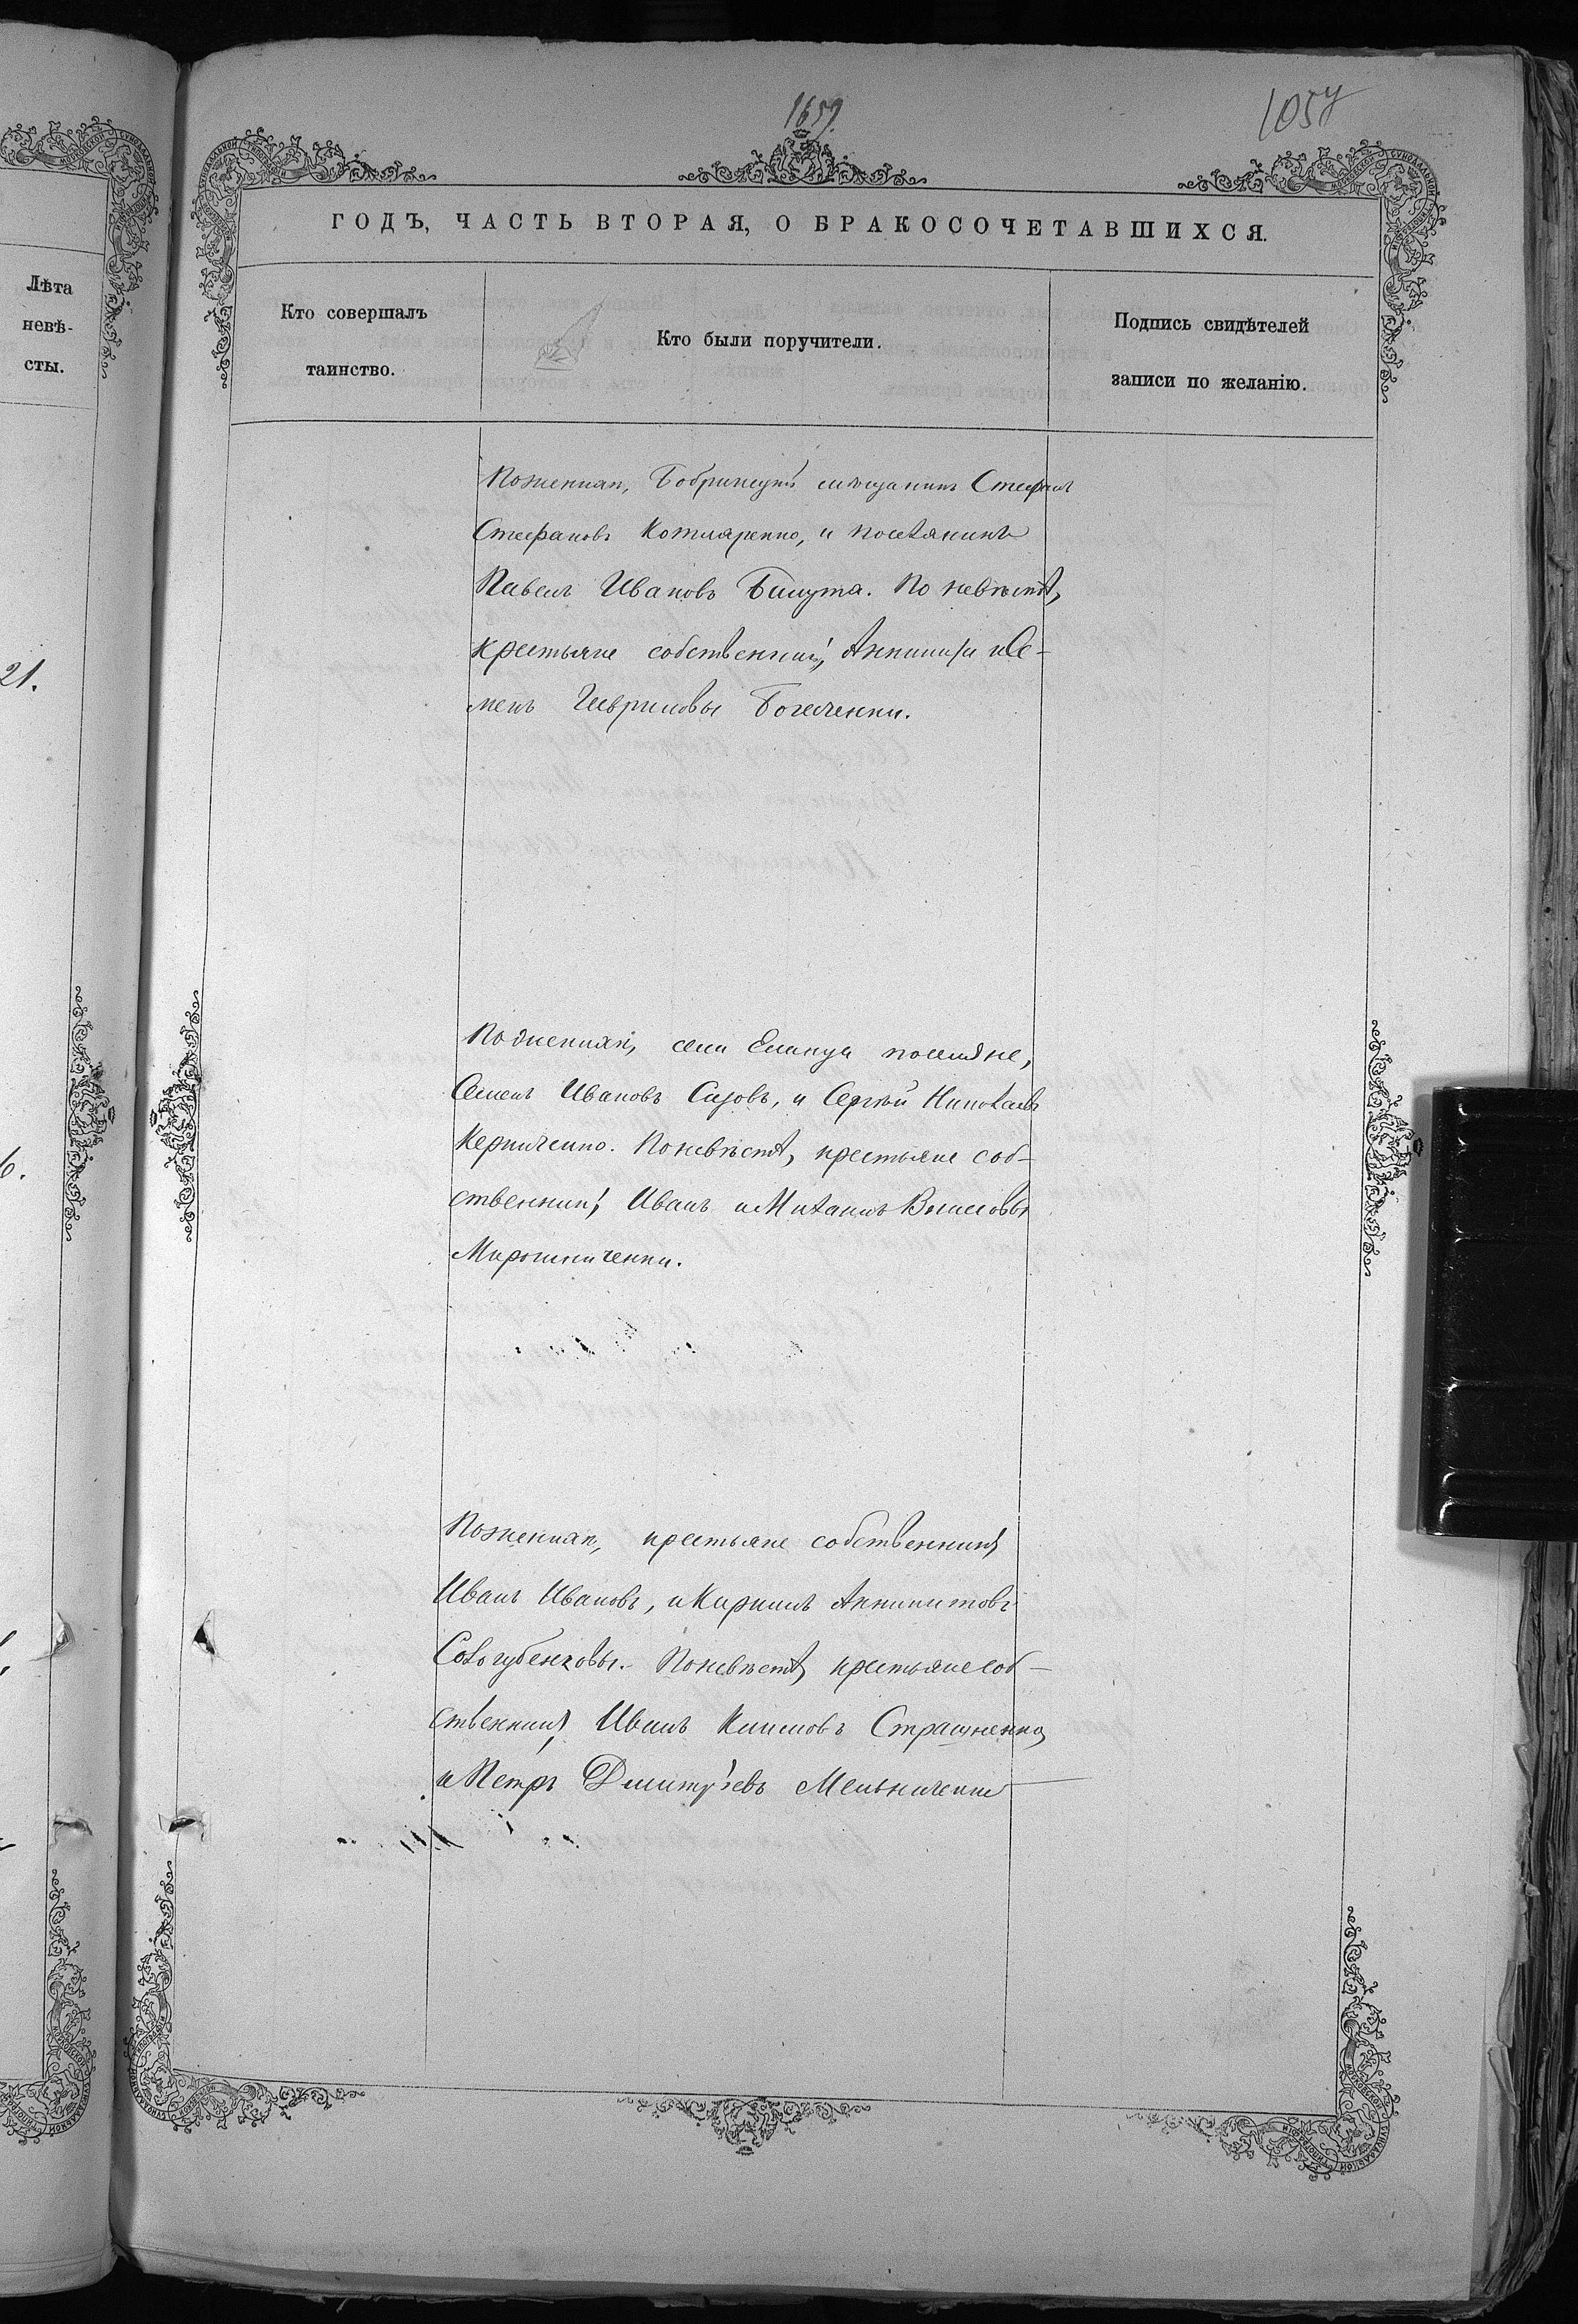 1659.
1057
ГОДЪ, ЧАСТЬ ВТОРАЯ, О БРАКОСОЧЕТАВШИХСЯ.
Лѣта
невѣ-
сты.
Кто совершалъ
таинство.
Кто были поручители.
Подпись свидѣтелей
записи по желанію.
По женихѣ, Бобринецкій мѣщанинъ Стефанъ
Стефановъ Котляренко, и поселянинъ
Павелъ Ивановъ Билута. По невѣстѣ,
крестьяне собственники, и Се-
21.
менъ Гавриловы
По женихѣ, села Еланца поселяне,
Семенъ Ивановъ Сазовъ, и Сергѣй Николаевъ
Керниченко. По невѣстѣ, крестьяне соб-
6.
ственники, Иванъ и Михаилъ Власовы
Мирошниченки.
По женихѣ, крестьяне собственники,
Иванъ Ивановъ, и Кириллъ Аникитовъ
Сологубенковы. По невѣстѣ, крестьяне соб-
ственники, Иванъ Климовъ Страшненко,
и Петръ Дмитріевъ Мельниченко